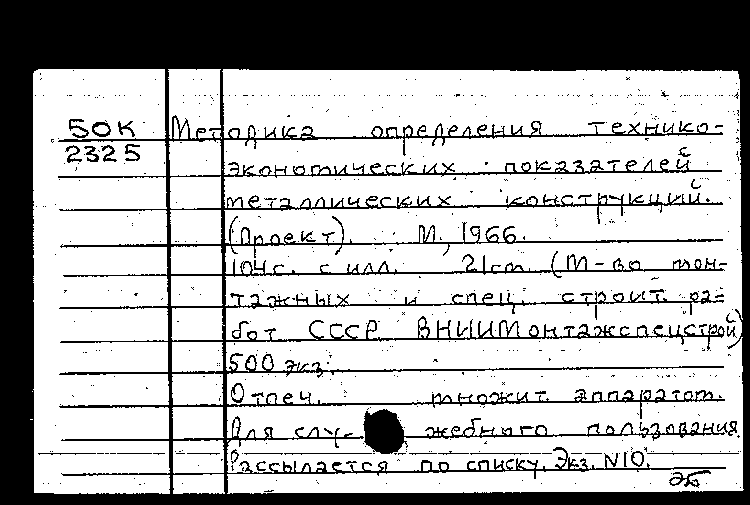 50К Методика определения технико-
2325 экономических показателей
металлических конструкций.
(Проект). М., 1966.
104с. с илл. 21cm. (М-во мон-
тажных и спец. строит. ра-
бот СССР. ВНИИМонтажспецстрой)
500 экз.
Отпеч. множит. аппаратом.
Для слу- жебного пользования
Рассылается по списку. Экз. N10.
эб